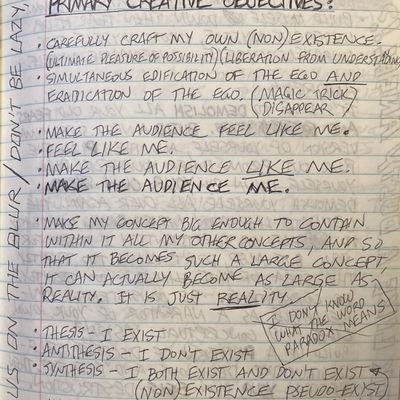 PRIMARY CREATIVE OBJECTIVES:
• CAREFULLY CRAFT MY OWN (NON)EXISTENCE.
(ULTIMATE PLEASURE OF POSSIBILITY)(LIBERATION FROM UNDERSTANDING
• SIMULTANEOUS EDIFICATION OF THE EGO AND
ERADICATION OF THE EGO. (MAGIC TRICK/
DISAPPEAR)
• MAKE THE AUDIENCE FEEL LIKE ME.
• FEEL LIKE ME.
• MAKE THE AUDIENCE LIKE ME.
• MAKE THE AUDIENCE ME.
• MAKE MY CONCEPT BIG ENOUGH TO CONTAIN
WITHIN IT ALL MY OTHER CONCEPTS, AND SO
THAT IT BECOMES SUCH A LARGE CONCEPT,
IT CAN ACTUALLY BECOME AS LARGE AS
REALITY. IT IS JUST REALITY.
I DON'T KNOW
WHAT THE WORD
PARADOX MEANS
• THESIS - I EXIST
• ANTITHESIS - I DON'T EXIST
• SYNTHESIS - I BOTH EXIST AND DON'T EXIST &
(NON)EXISTENCE PSEUDO-EXIST)
US ON THE BLUR / DON'T BE LAZY,